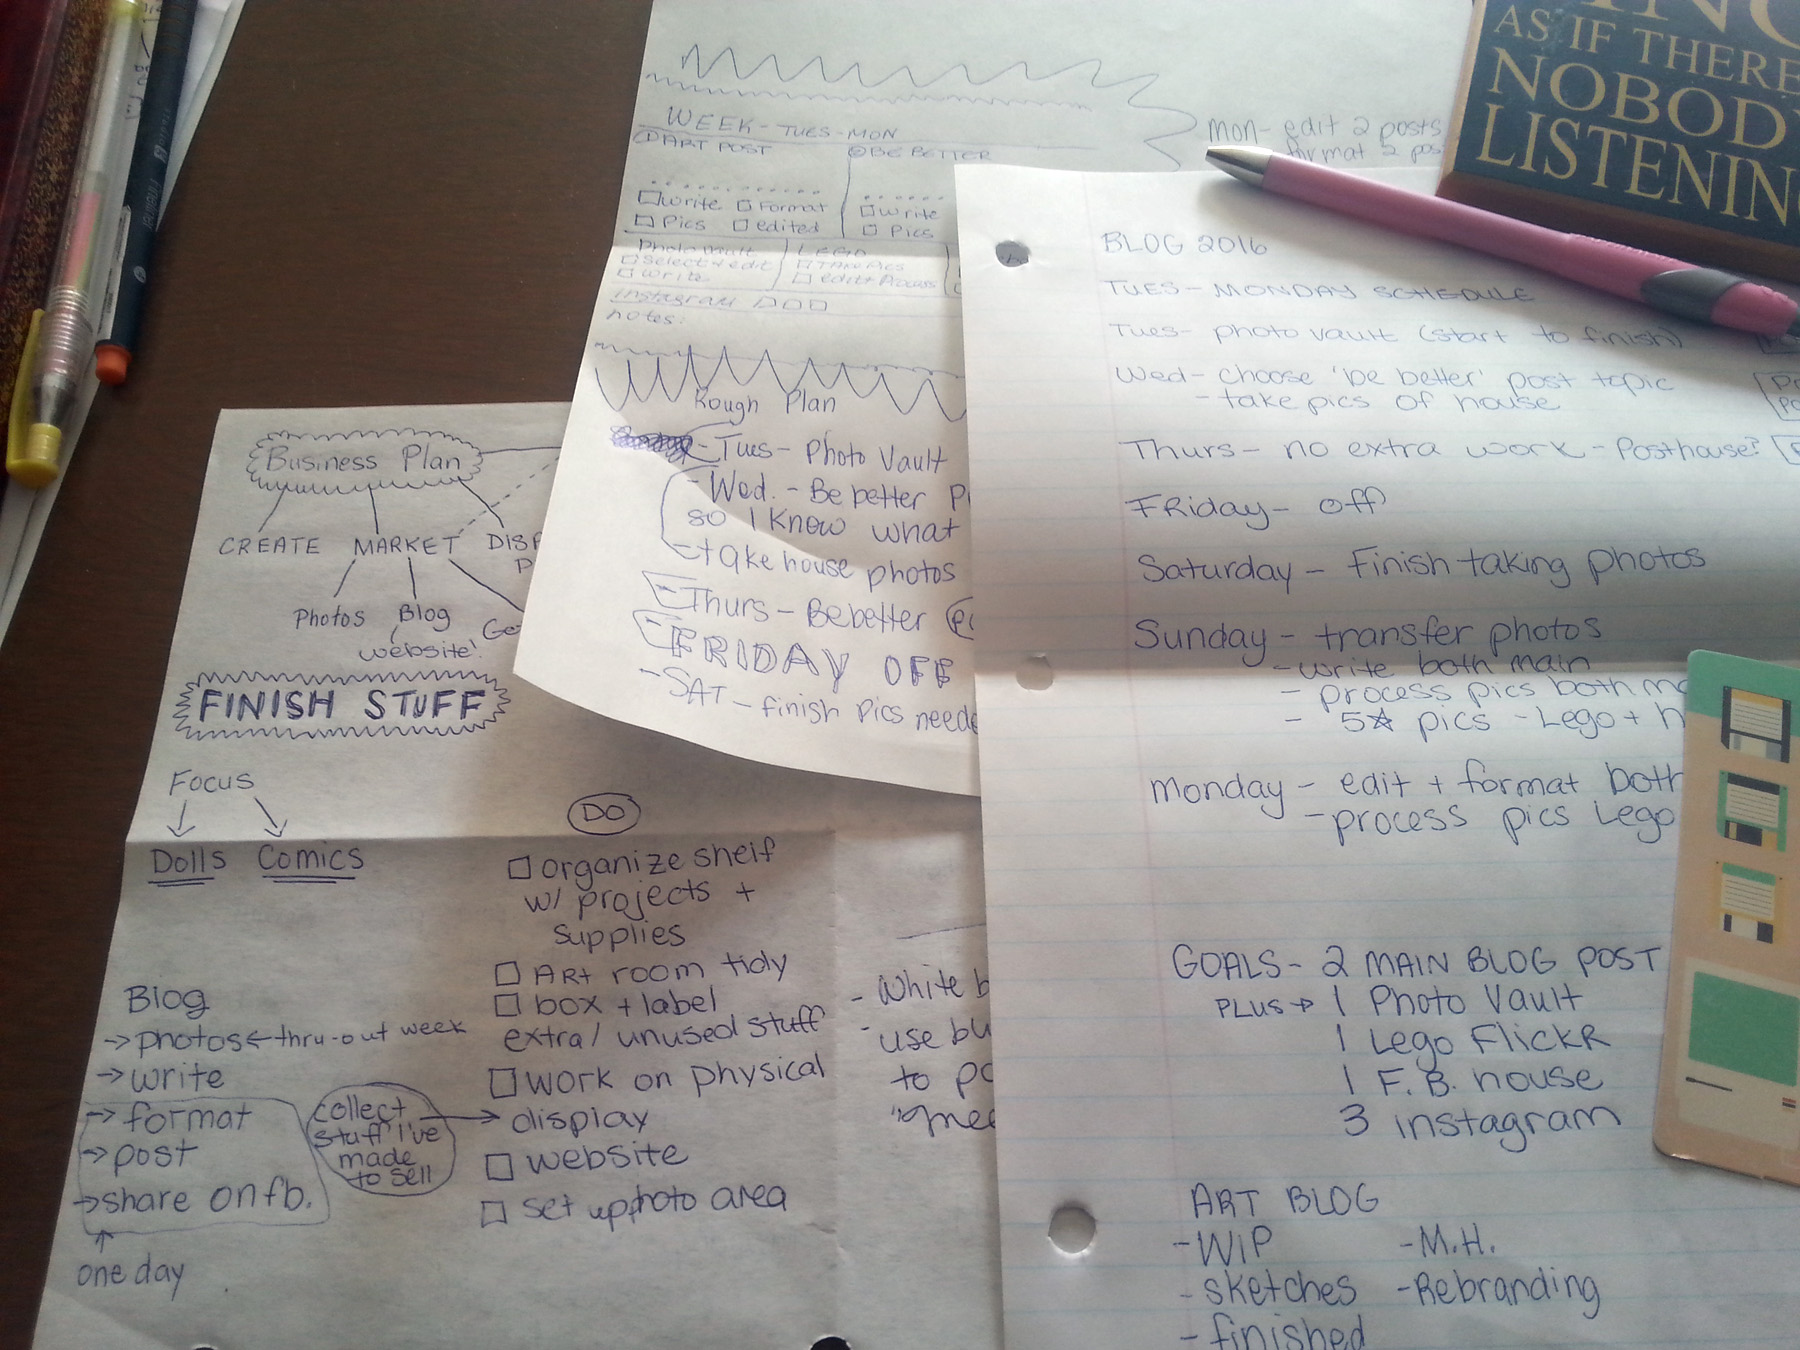 AS IF THERE
NOBODY
LISTENING
WEEK - TUES - MON
① ART POST
② BE BETTER
□ write □ Format
□ Pics □ edited
□ write
□ Pics
Photo Vault
□ Select + edit
□ write
LEGO
□ TAKE PICS
□ edit + Process
instagram □□□
notes:
mon - edit 2 posts
format 2 pos
Rough Plan
- Tues - Photo Vault
- Wed. - Be better
so I know what
- take house photos
- Thurs - Be better
- FRIDAY OFF
- SAT - finish pics neede
BLOG 2016
TUES - MONDAY SCHEDULE
Tues - photo vault (start to finish)
Wed - choose 'be better' post topic
- take pics of house
Thurs - no extra work - Post house?
FRiday - off
Saturday - Finish taking photos
Sunday - transfer photos
- write both main
- process pics both ma
- 5☆ pics - Lego + h
Monday - edit + format both
- process pics Lego
GOALS - 2 MAIN BLOG POST
PLUS → 1 Photo Vault
1 Lego FlickR
1 F.B. house
3 instagram
ART BLOG
- WiP
- M.H.
- sketches
- Rebranding
- finished
Business Plan
CREATE MARKET DISP
Photos Blog
website!
FINISH STUFF
Focus
Dolls Comics
Blog
→ photos ← thru-out week
→ write
→ format
→ post
→ share on fb.
one day
collect
stuff I've
made
to sell
DO
□ organize shelf
w/ projects +
supplies
□ ARt room tidy
□ box + label
extra / unused stuff
□ work on physical
display
□ website
□ set up photo area
- White b
- use bu
to